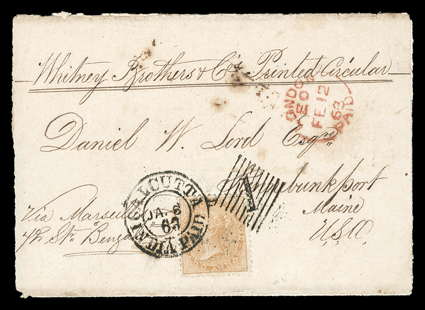 Whitney Brothers & Co's Printed Circular
LONDON
EO
FE 12
63
PAID
Daniel W. Lord Esqre
Kennebunkport
Maine
USA
Via Marseilles
CALCUTTA
JA. 8
63
INDIA PAID
1